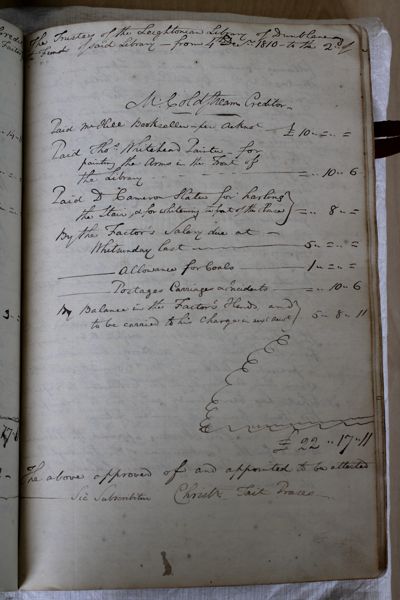 The Trustees of the Leightonian Library of Dunblane and
of said Library – from 4th Decr. 1810 – to the 2d of
Mr Coldstream Creditor
Paid McGill Bookseller per Acknot £ 10 „ = „ =
Paid Thos. Whitehead Painter for
painting the Arms in the Front of
the Library = „ 10 „ 6
Paid D Cameron Slater for harling
the Stair & for whitening in part of the House = „ 8 „ =
By the Factor's Salary due at
Whitsunday last 5 „ = „ =
Allowance for Coals 1 „ = „ =
Postages Carriages & Incidents = „ 10 „ 6
By Balance in the Factor's Hands and
to be carried to his Charge in next Acct 5 „ 8 „ 11
£ 22 „ 17 „ 11
The above approved of and appointed to be attested
Sic Subscribitur Christr. Tait Praeses